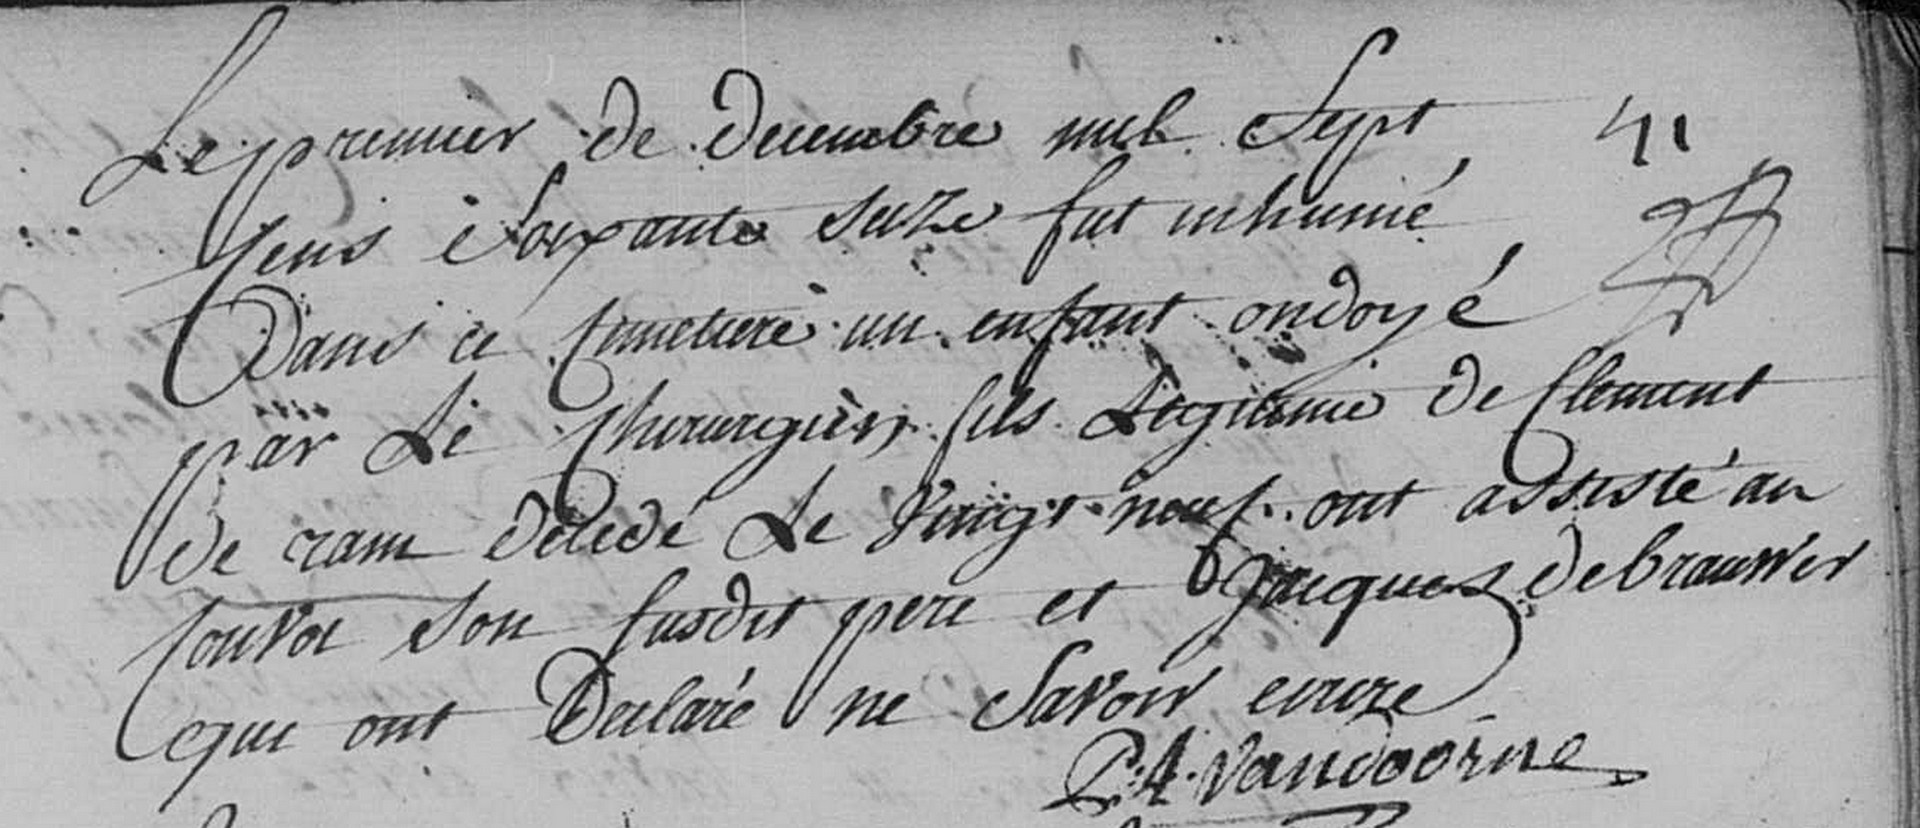 Le premier de decembre mil Sept 41
Cens Soixante Seize fut inhumé
Dans ce Cimetiere un enfant ondoyé
par Le Chirurgien fils Legitime de Clement
De cram décedé Le Vingt neuf ont assisté au
Convoi Son susdit pere et Jacques debrauwer
qui ont Declaré ne Savoir ecrire
P:A: Vandoorne